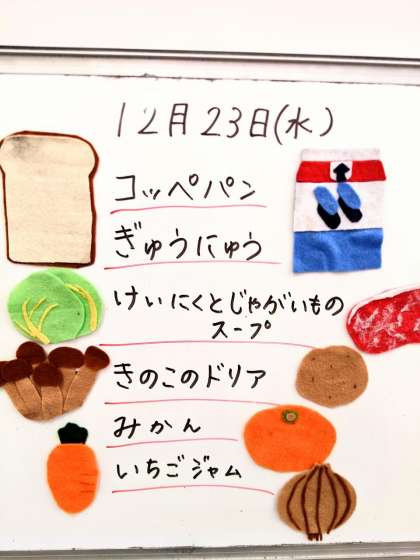 12月23日(水)
コッペパン
ぎゅうにゅう
けいにくとじゃがいもの
スープ
きのこのドリア
みかん
いちごジャム